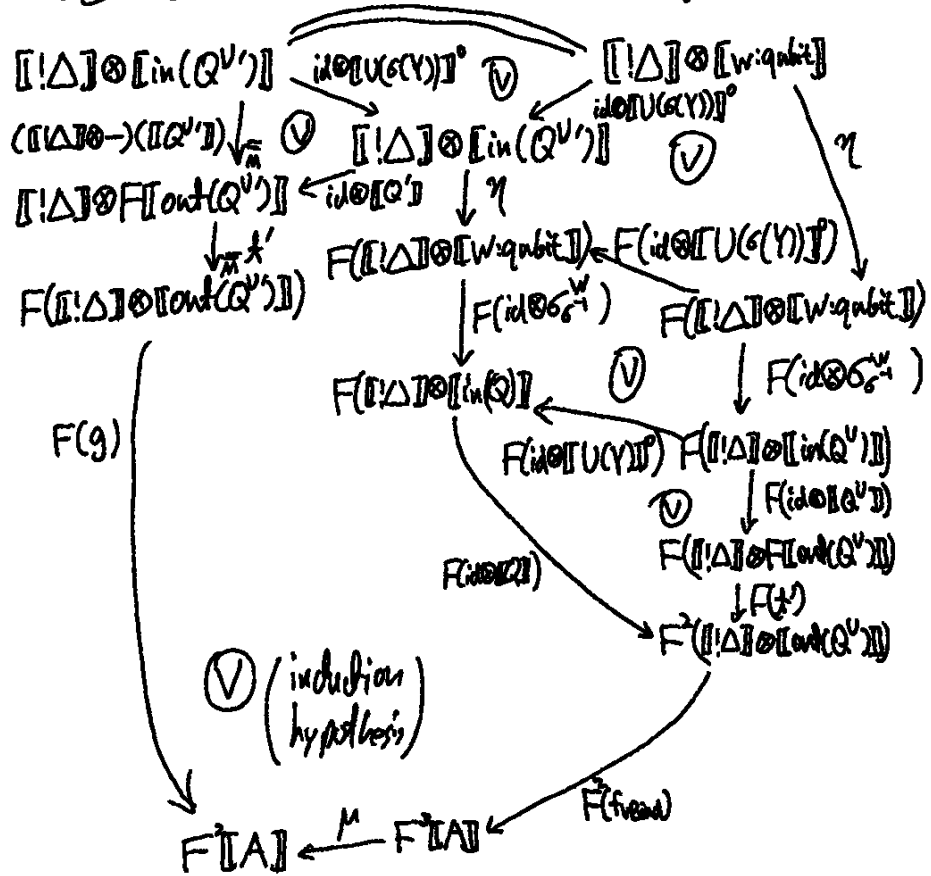 ⟦!Δ⟧⊗⟦in(Q^U')⟧ id⊗⟦U(σ(Y))⟧° Ⓥ ⟦!Δ⟧⊗⟦W:qubit⟧
(⟦!Δ⟧⊗−)(⟦Q^U'⟧) Ⓥ id⊗⟦U(σ(Y))⟧°
⟦!Δ⟧⊗⟦in(Q^U')⟧ Ⓥ η
⟦!Δ⟧⊗F⟦out(Q^U')⟧ id⊗⟦Q'⟧ η
t'
F(⟦!Δ⟧⊗⟦W:qubit⟧) F(id⊗⟦U(σ(Y))⟧°)
F(⟦!Δ⟧⊗⟦out(Q^U')⟧)
F(id⊗σ^W_σ^-1) F(⟦!Δ⟧⊗⟦W:qubit⟧)
Ⓥ F(id⊗σ^W_σ^-1)
F(⟦!Δ⟧⊗⟦in(Q)⟧)
F(g) F(id⊗⟦U(Y)⟧°) F(⟦!Δ⟧⊗⟦in(Q^U)⟧)
Ⓥ F(id⊗⟦Q^U⟧)
F(⟦!Δ⟧⊗F⟦out(Q^U)⟧)
F(id⊗⟦Q⟧) F(t')
F²(⟦!Δ⟧⊗⟦out(Q^U)⟧)
Ⓥ (induction
hypothesis)
μ
F²⟦A⟧ F³⟦A⟧